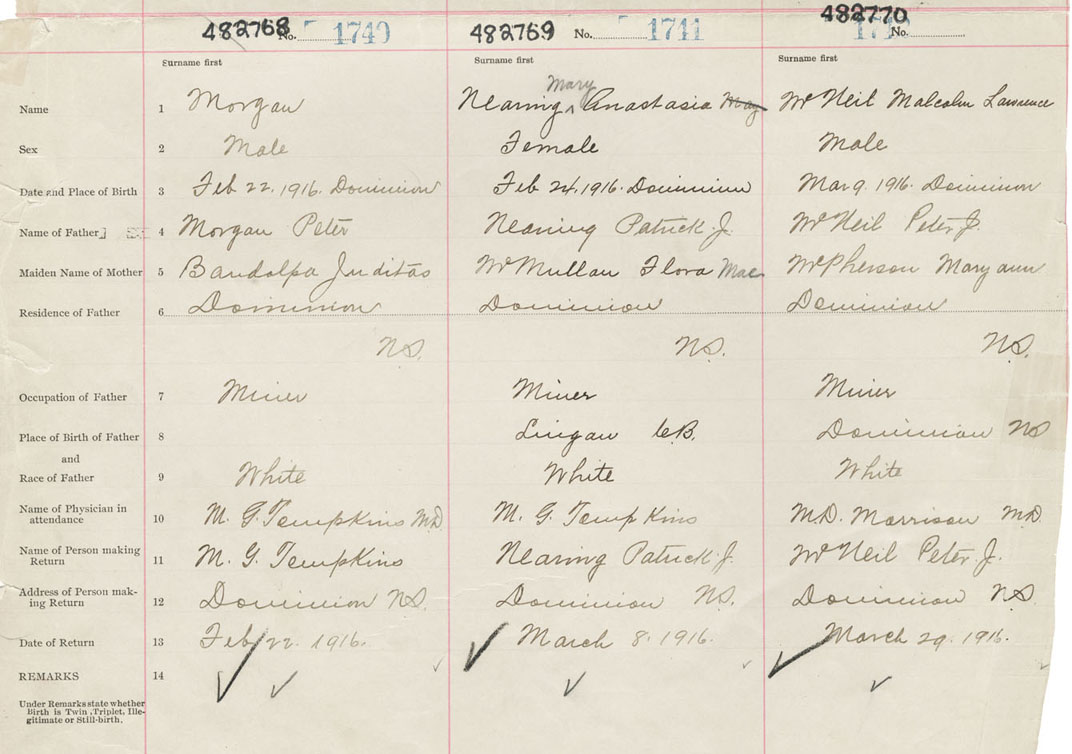 482768 No. 1740 482769 No. 1741 482770 No.
Surname first Surname first Surname first
Mary
Name 1 Morgan Nearing ^ Anastasia May McNeil Malcolm Lawrence
Sex 2 Male Female Male
Date and Place of Birth 3 Feb 22, 1916. Dominion Feb 24, 1916. Dominion Mar 9. 1916. Dominion
Name of Father 4 Morgan Peter Nearing Patrick J. McNeil Peter J.
Maiden Name of Mother 5 Juditas McMullan Flora Mae McPherson Mary ann
Residence of Father 6 Dominion Dominion Dominion
N.S. N.S. N.S.
Occupation of Father 7 Miner Miner Miner
Place of Birth of Father 8 Lingan C.B. Dominion NS
and
Race of Father 9 White White White
Name of Physician in
attendance 10 M. G. Tompkins M.D. M. G. Tompkins M.D. Morrison M.D.
Name of Person making
Return 11 M. G. Tompkins Nearing Patrick J. McNeil Peter. J.
Address of Person mak-
ing Return 12 Dominion N.S. Dominion N.S. Dominion N.S.
Date of Return 13 Feb 22 1916. March 8. 1916. March 29. 1916.
REMARKS 14
Under Remarks state whether
Birth is Twin, Triplet, Ille-
gitimate or Still-birth.